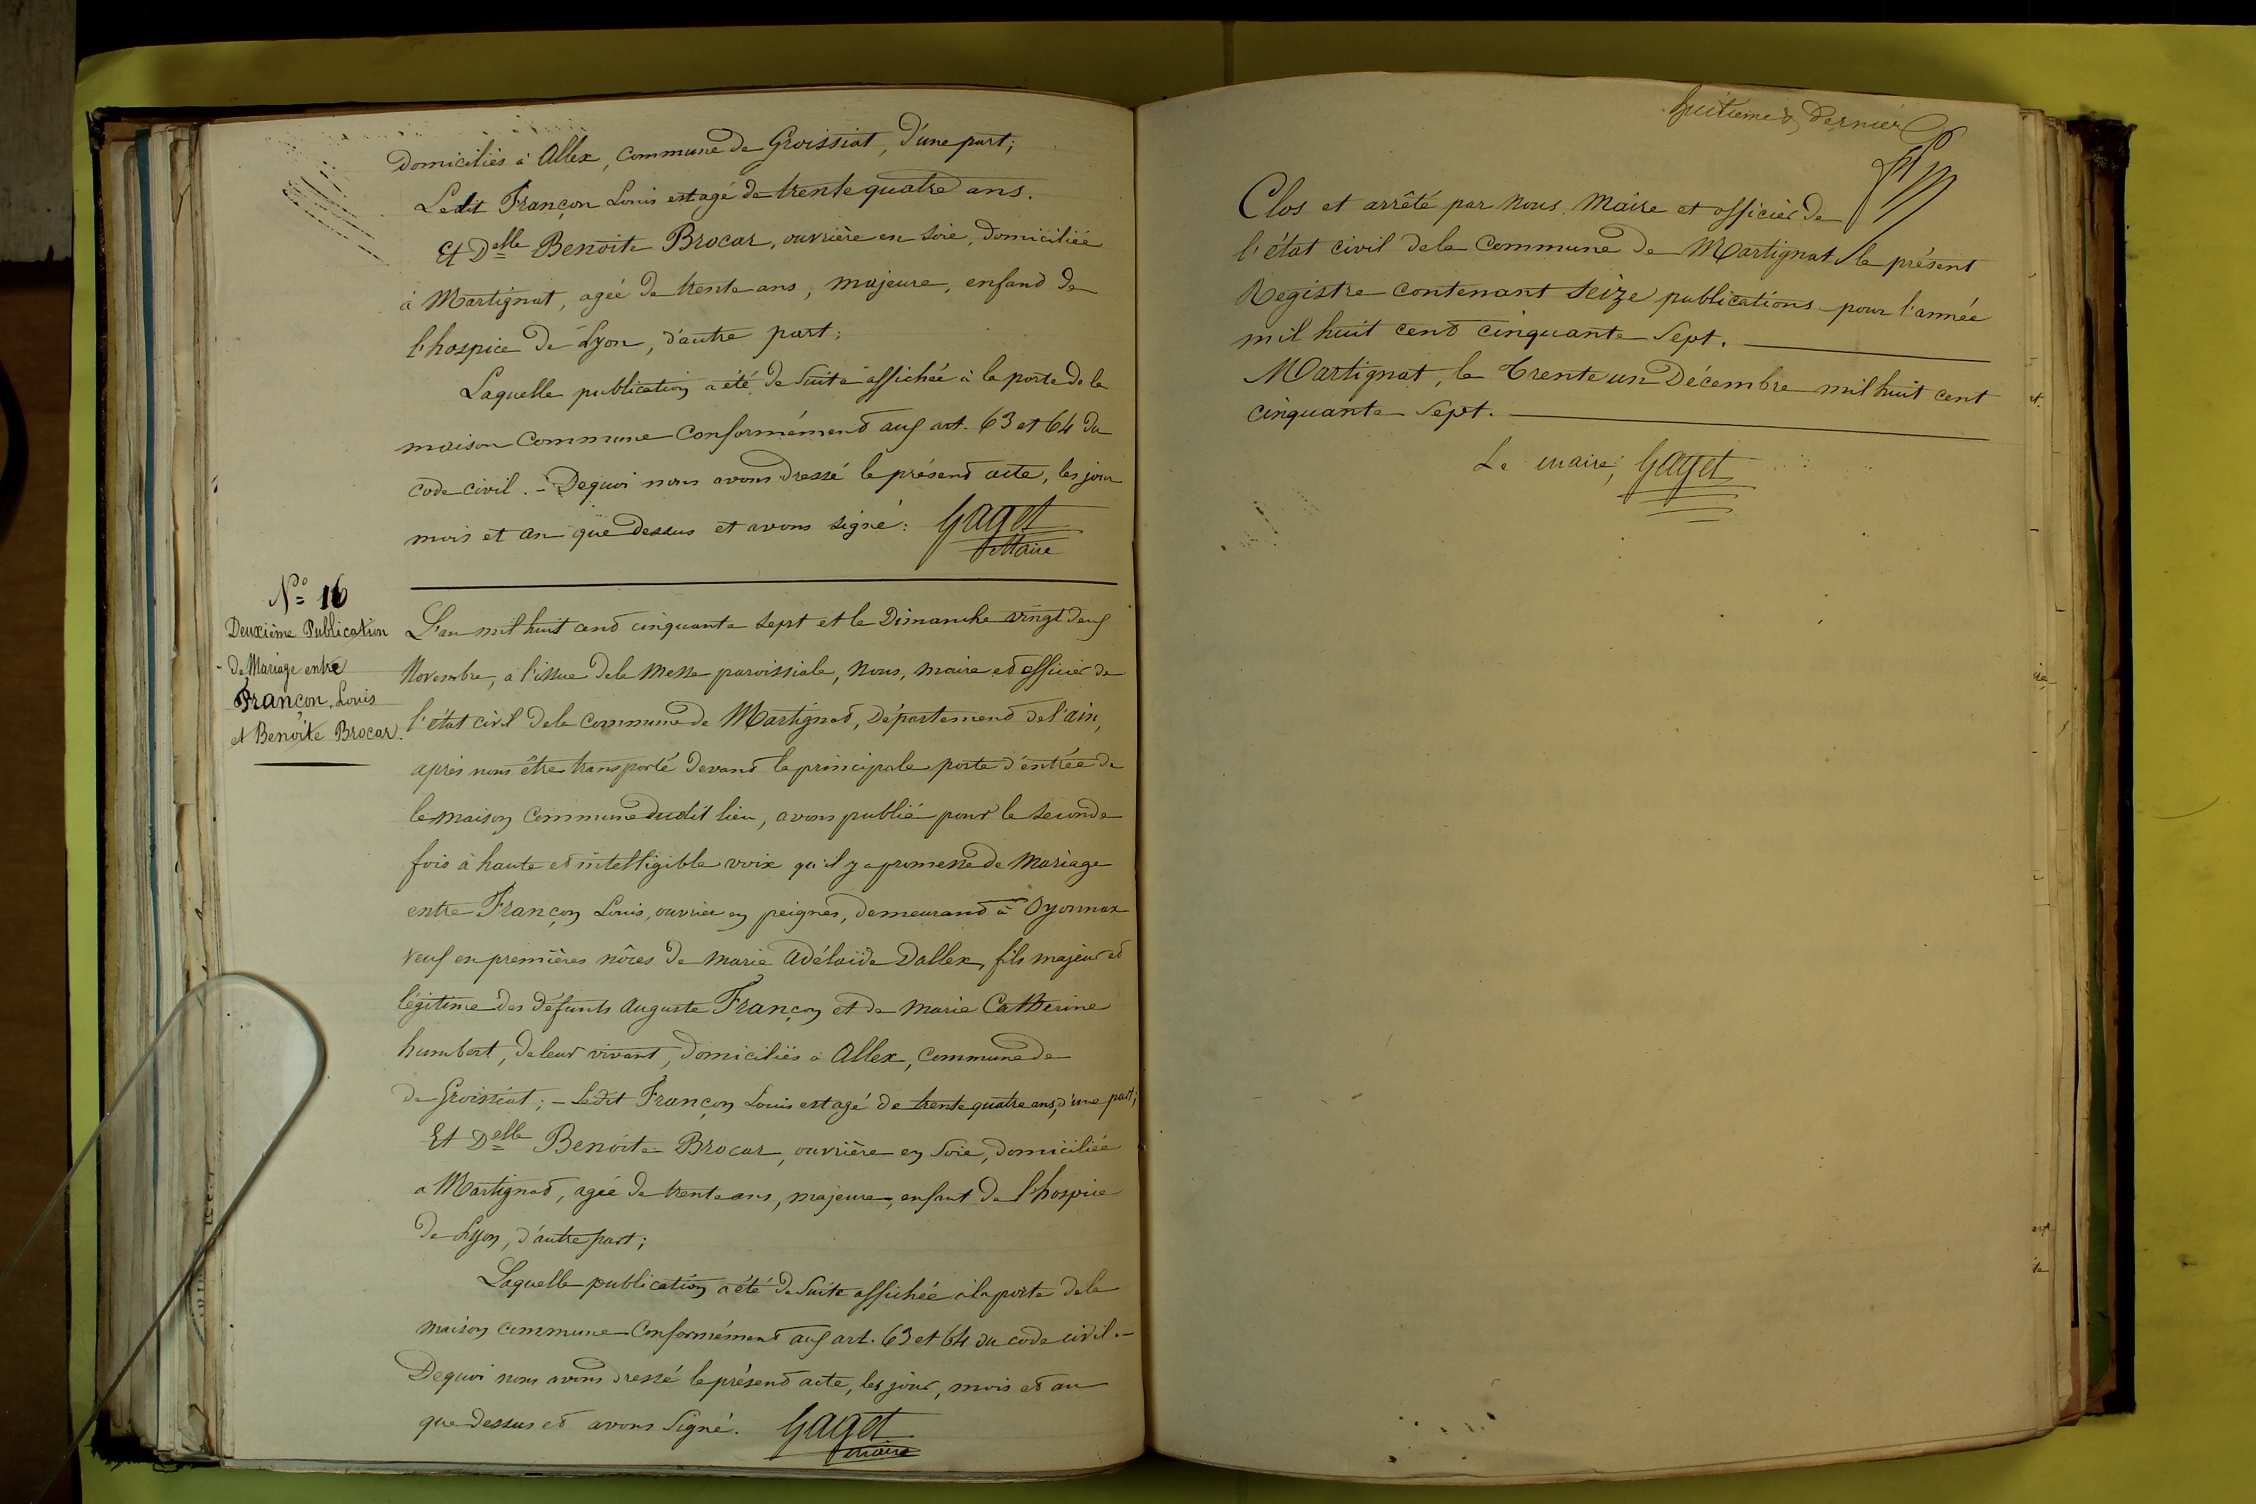 domiciliés à Allex, commune de Groissiat, d'une part;
Ledit Françon Louis est agé de trente quatre ans.
Et Delle Benoite Brocar, ouvrière en soie, domiciliée
à Martignat, agée de trente ans, majeure, enfand de
l'hospice de Lyon, d'autre part;
Laquelle publication a été de suite affichée à la porte de la
maison commune conformémend aux art. 63 et 64 du
code civil. - De quoi nous avons dressé le présend acte, les jour
mois et an que dessus et avons signé: Gaget
Maire
N° 16
Deuxième Publication
de Mariage entre
Françon, Louis
et Benoîte Brocar.
L'an mil huit cend cinquante sept et le Dimanche vingt deux
Novembre, a l'issue de la Messe paroissiale, Nous, maire et officier de
l'état civil de la commune de Martignat, Département de l'ain,
après nous être transporté devand la principale porte d'entrée de
la maison commune dudit lieu, avons publié pour la seconde
fois à haute et intelligible voix qu'il y a promesse de Mariage
entre Françon Louis, ouvrier en peignes, demeurand à Oyonnax
veuf en premières nôces de Marie Adélaïde Dallex, fils majeur et
légitime des défunts Auguste Françon et de Marie Catherine
humbert, de leur vivant, domiciliés à Allex, commune de
de Groissiat; - Ledit Françon Louis est agé de trente quatre ans, d'une part;
Et Delle Benoite Brocar, ouvrière en soie, domiciliée
a Martignat, agée de trente ans, majeure, enfant de l'hospice
de Lyon, d'autre part;
Laquelle publication a été de suite affichée à la porte de la
maison commune conformémend aux art. 63 et 64 du code civil. -
De quoi nous avons dressé le présend acte, les jour, mois et an
que dessus et avons signé. Gaget
maire
huitième & dernier
Clos et arrêté par Nous, Maire et officier de
l'état civil de la commune de Martignat le présent
Registre contenant seize publications pour l'année
mil huit cend cinquante sept.
Martignat, le trente un Décembre mil huit cent
cinquante sept.
Le maire, Gaget